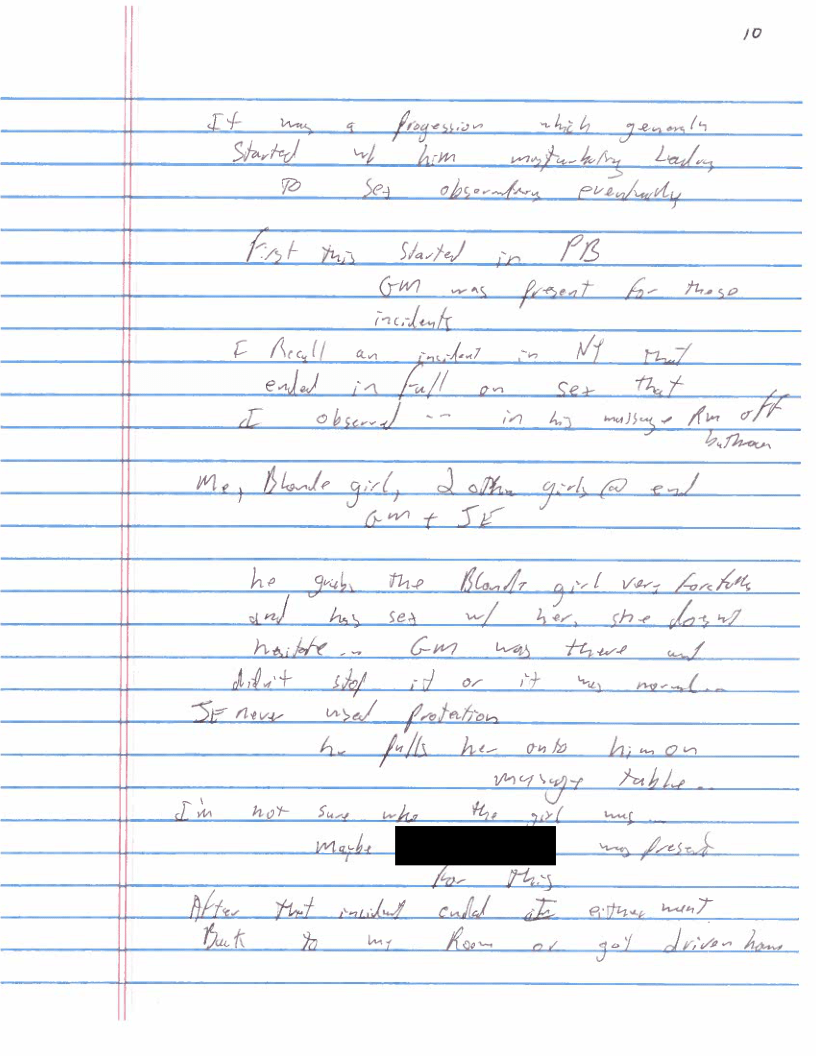 10
It was a progression which generally
Started w/ him masturbating Leading
TO Sex observations eventually
First this started in PB
GM was present for these
incidents
I Recall an incident in NY that
ended in full on sex that
I observed -- in his massage Rm off
bathroom
Me, Blonde girl, 2 other girls @ end
GM + JE
he grabs the Blonde girl very forcefully
and has sex w/ her, she doesn't
hesitate -- GM was there and
didn't stop it or it was normal --
JE never used protection
he pulls her onto him on
massage table --
I'm not sure who the girl was --
Maybe was present
for this
After that incident ended either went
Back to my Room or got driven home